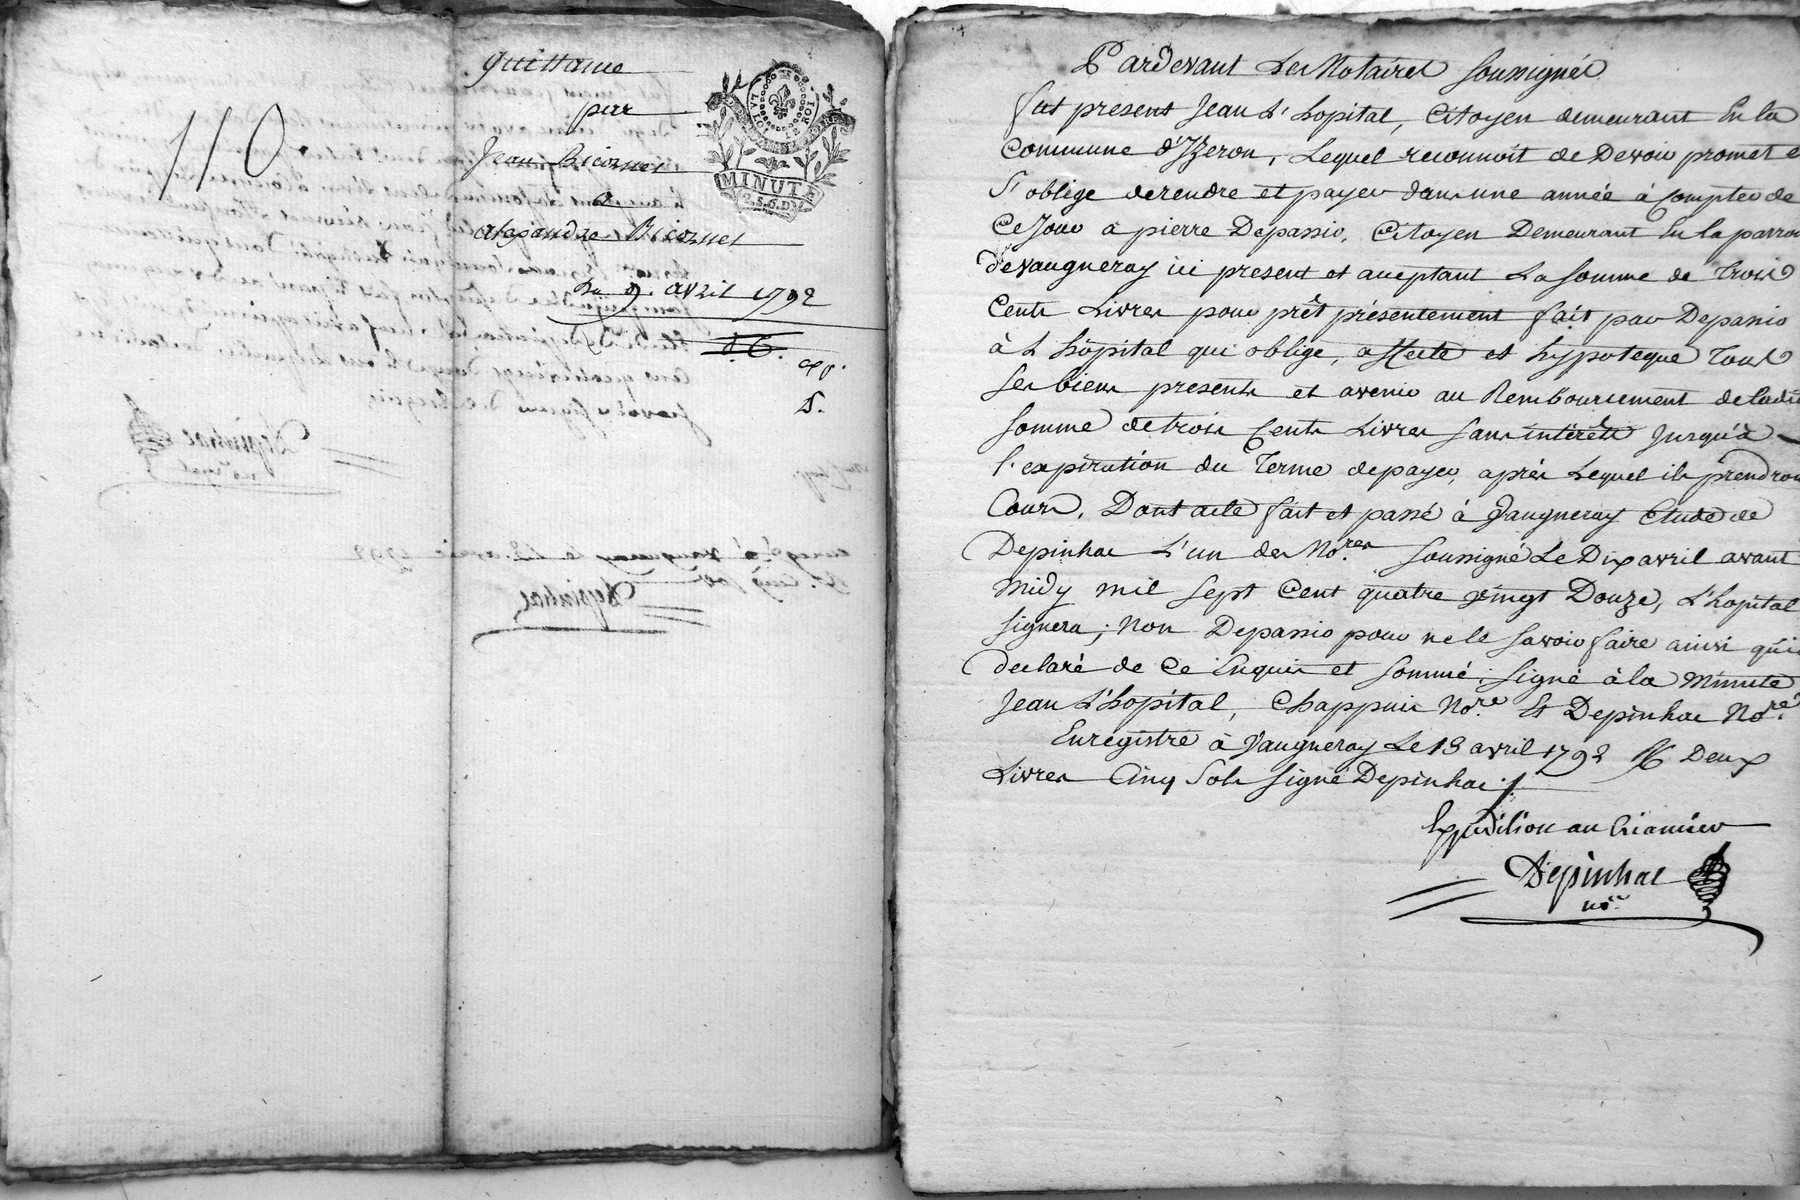 110.
quittance
par
Jean Bicornet
a
alexandre Bicornet
Du 9. avril 1792
LA LOI LE ROI
MINUTE
2.S.6.D.
Pardevant Les Notaires soussignés
fut present Jean L'hopital, Citoyen demeurant En la
Commune d'Yzeron, Lequel reconnoit de Devoir promet e
S'oblige de rendre et payer dans une année à Compter de
Ce Jour à pierre Depassio, Citoyen Demeurant En la parroi
de Vaugneray ici present et aceptant La Somme de Trois
Cents Livres pour prêt présentement fait par Depassio
à L'hôpital qui oblige, affecte et hypoteque Tous
Ses biens presents et avenir au Remboursement de ladit
Somme de trois Cents Livres sans intérêts Jusqu'à
l'expiration du Terme de payer, après Lequel ils prendron
Cours. Dont acte fait et passé à Vaugneray Etude de
Depinhac L'un des No.res soussigné Le Dix avril avant
midy mil sept Cent quatre vingt Douze, L'hopital
signera; Non Depassio pour ne le savoir faire ainsi qu'i
declaré de Ce Enquis et sommé; signé à la Minute
Jean L'hopital, Chappuis No.re Et Depinhac No.re
Enregistré à Vaugneray Le 13 avril 1792 R Deux
Livres Cinq Sols signé Depinhac
Expédition au Créancier
Depinhac
no.re